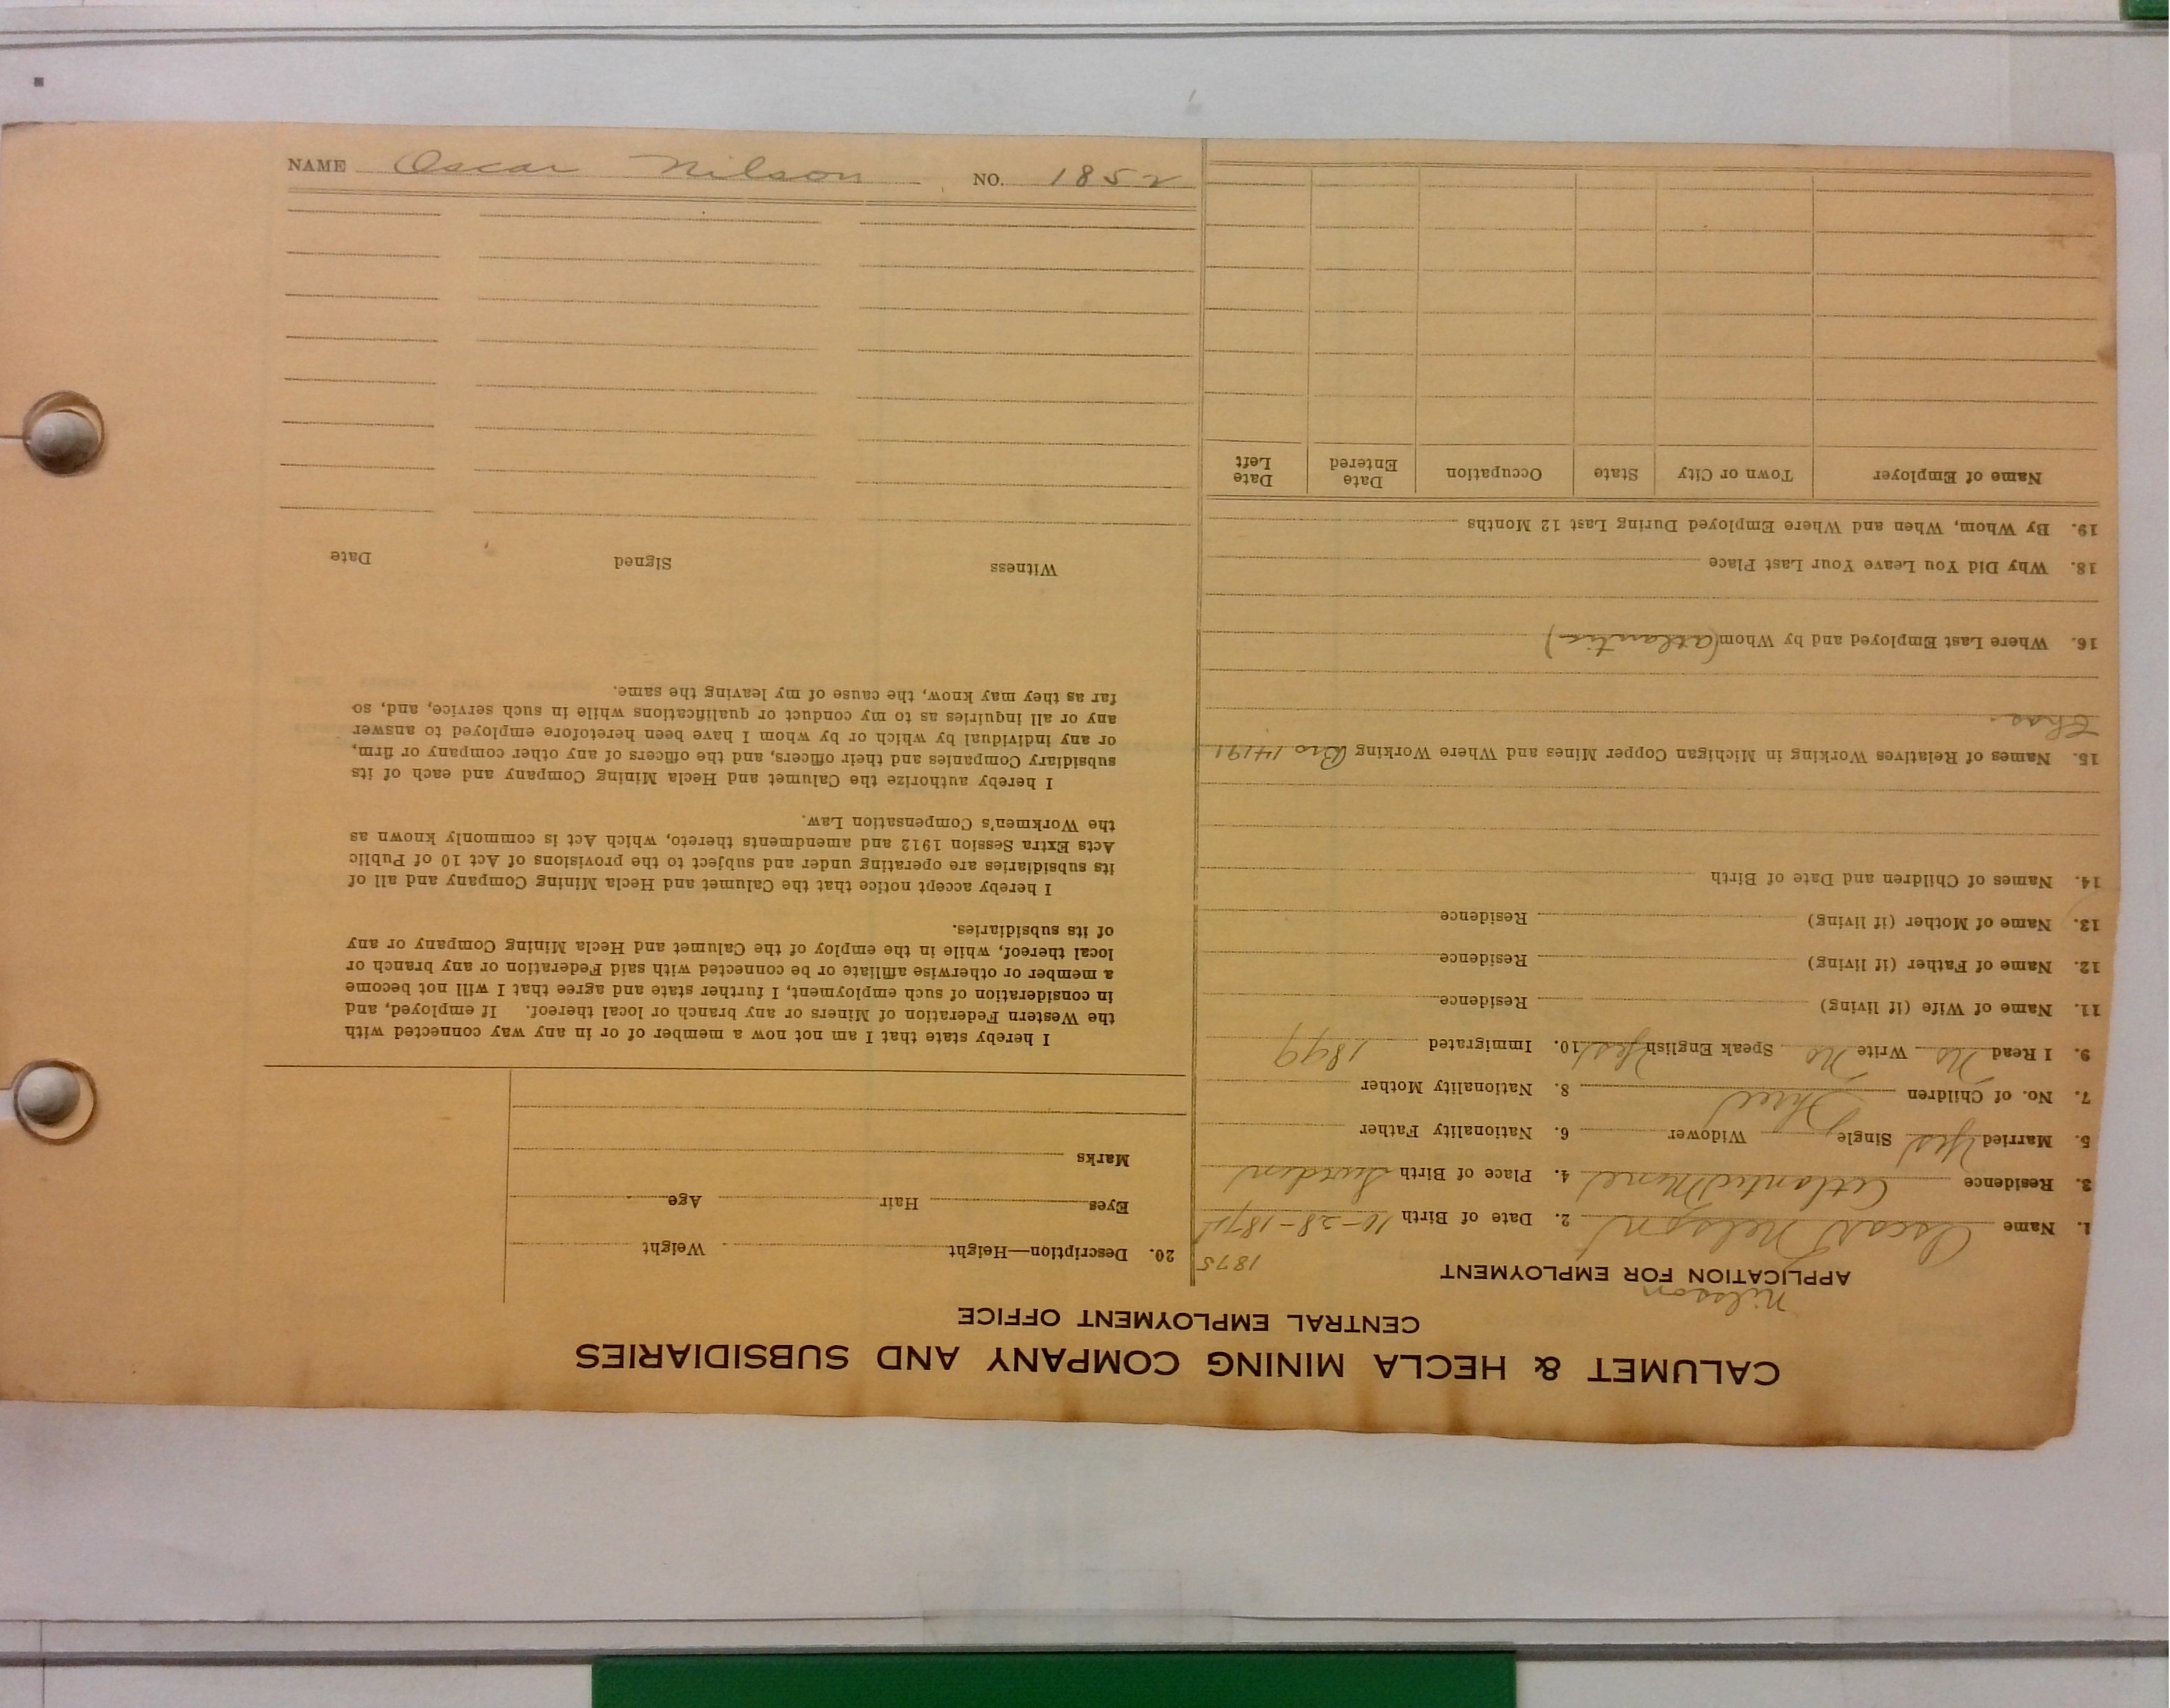 NAME Oscar Nilson NO. 1852
CALUMET & HECLA MINING COMPANY AND SUBSIDIARIES
CENTRAL EMPLOYMENT OFFICE
Nilsson
APPLICATION FOR EMPLOYMENT
1875
1. Name Oscar Nelson 2. Date of Birth 10-28-1875
3. Residence Atlantic Mine 4. Place of Birth Sweden
5. Married Yes Single Widower 6. Nationality Father
7. No. of Children Three 8. Nationality Mother
9. I Read No Write No Speak English Yes 10. Immigrated 1899
11. Name of Wife (if living) Residence
12. Name of Father (if living) Residence
13. Name of Mother (if living) Residence
14. Names of Children and Date of Birth
15. Names of Relatives Working in Michigan Copper Mines and Where Working Bro 14191
Chas.
16. Where Last Employed and by Whom (Atlantic)
18. Why Did You Leave Your Last Place
19. By Whom, When and Where Employed During Last 12 Months
Name of Employer Town or City State Occupation Date Entered Date Left
20. Description—Height Weight
Eyes Hair Age
Marks
I hereby state that I am not now a member of or in any way connected with
the Western Federation of Miners or any branch or local thereof. If employed, and
in consideration of such employment, I further state and agree that I will not become
a member or otherwise affiliate or be connected with said Federation or any branch or
local thereof, while in the employ of the Calumet and Hecla Mining Company or any
of its subsidiaries.
I hereby accept notice that the Calumet and Hecla Mining Company and all of
its subsidiaries are operating under and subject to the provisions of Act 10 of Public
Acts Extra Session 1912 and amendments thereto, which Act is commonly known as
the Workmen's Compensation Law.
I hereby authorize the Calumet and Hecla Mining Company and each of its
subsidiary Companies and their officers, and the officers of any other company or firm,
or any individual by which or by whom I have been heretofore employed to answer
any or all inquiries as to my conduct or qualifications while in such service, and, so
far as they may know, the cause of my leaving the same.
Witness Signed Date